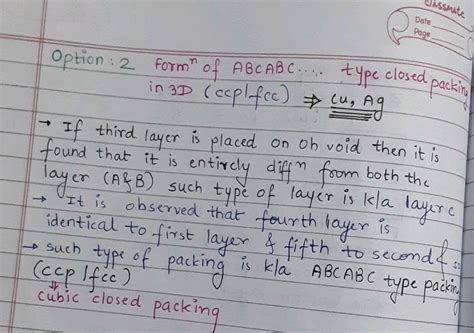 classmate
Date
Page
Option : 2 Formⁿ of ABCABC.... type closed packing
in 3D (ccp/fcc) ⇒ Cu, Ag
→ If third layer is placed on Oh void then it is
found that it is entirely diffⁿ from both the
layer (A&B) such type of layer is k/a layer C
→ It is observed that fourth layer is
identical to first layer & fifth to second &
→ such type of packing is k/a ABCABC type packing
(ccp/fcc)
↓
cubic closed packing